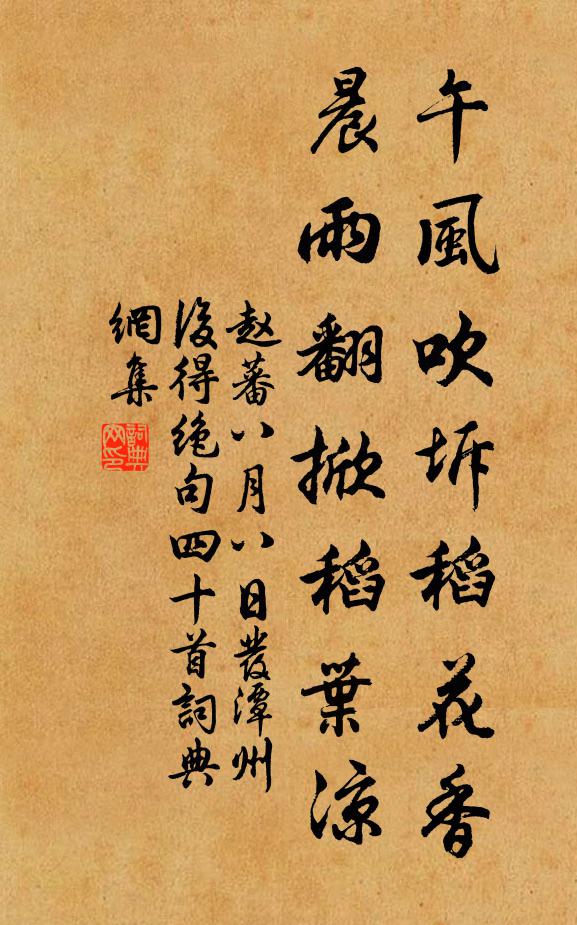 午風吹坼稻花香
晨雨翻掀稻葉涼
赵蕃八月八日發潭州
後得绝句四十首詞典
網集
詞典
网印